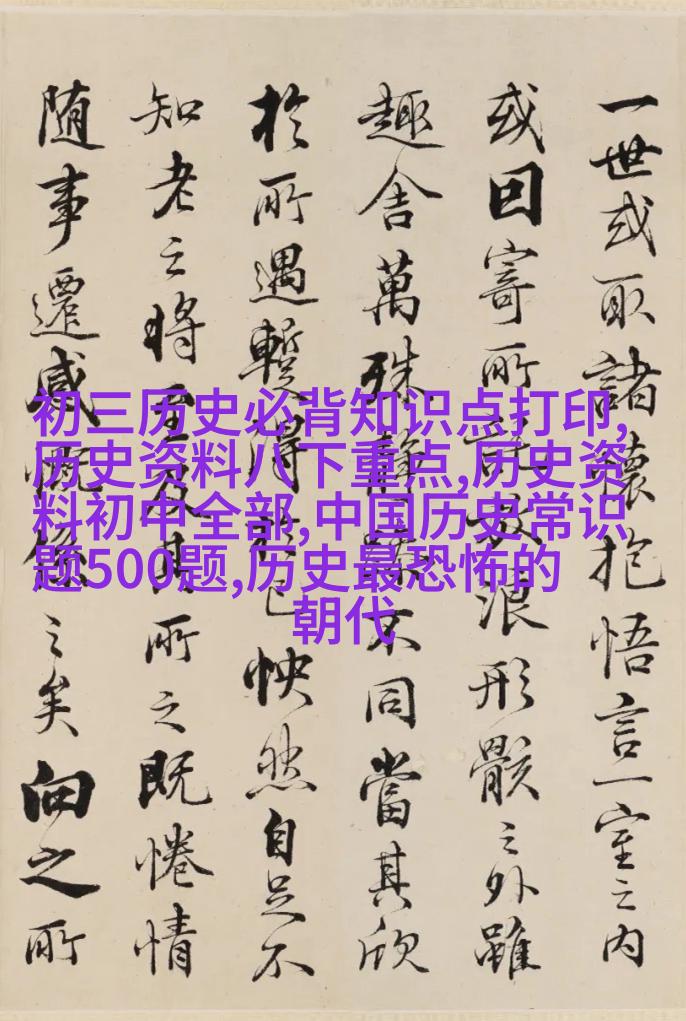 一世或取諸懷抱悟言一室之内
或因寄所託放浪形骸之外雖
趣舍萬殊靜躁不同當其欣
於所遇暫得於己怏然自足不
知老之將至及其所之既惓情
随事遷感慨係之矣向之所
初三历史必背知识点打印,
历史资料八下重点,历史资
料初中全部,中国历史常识
题500题,历史最恐怖的
朝代